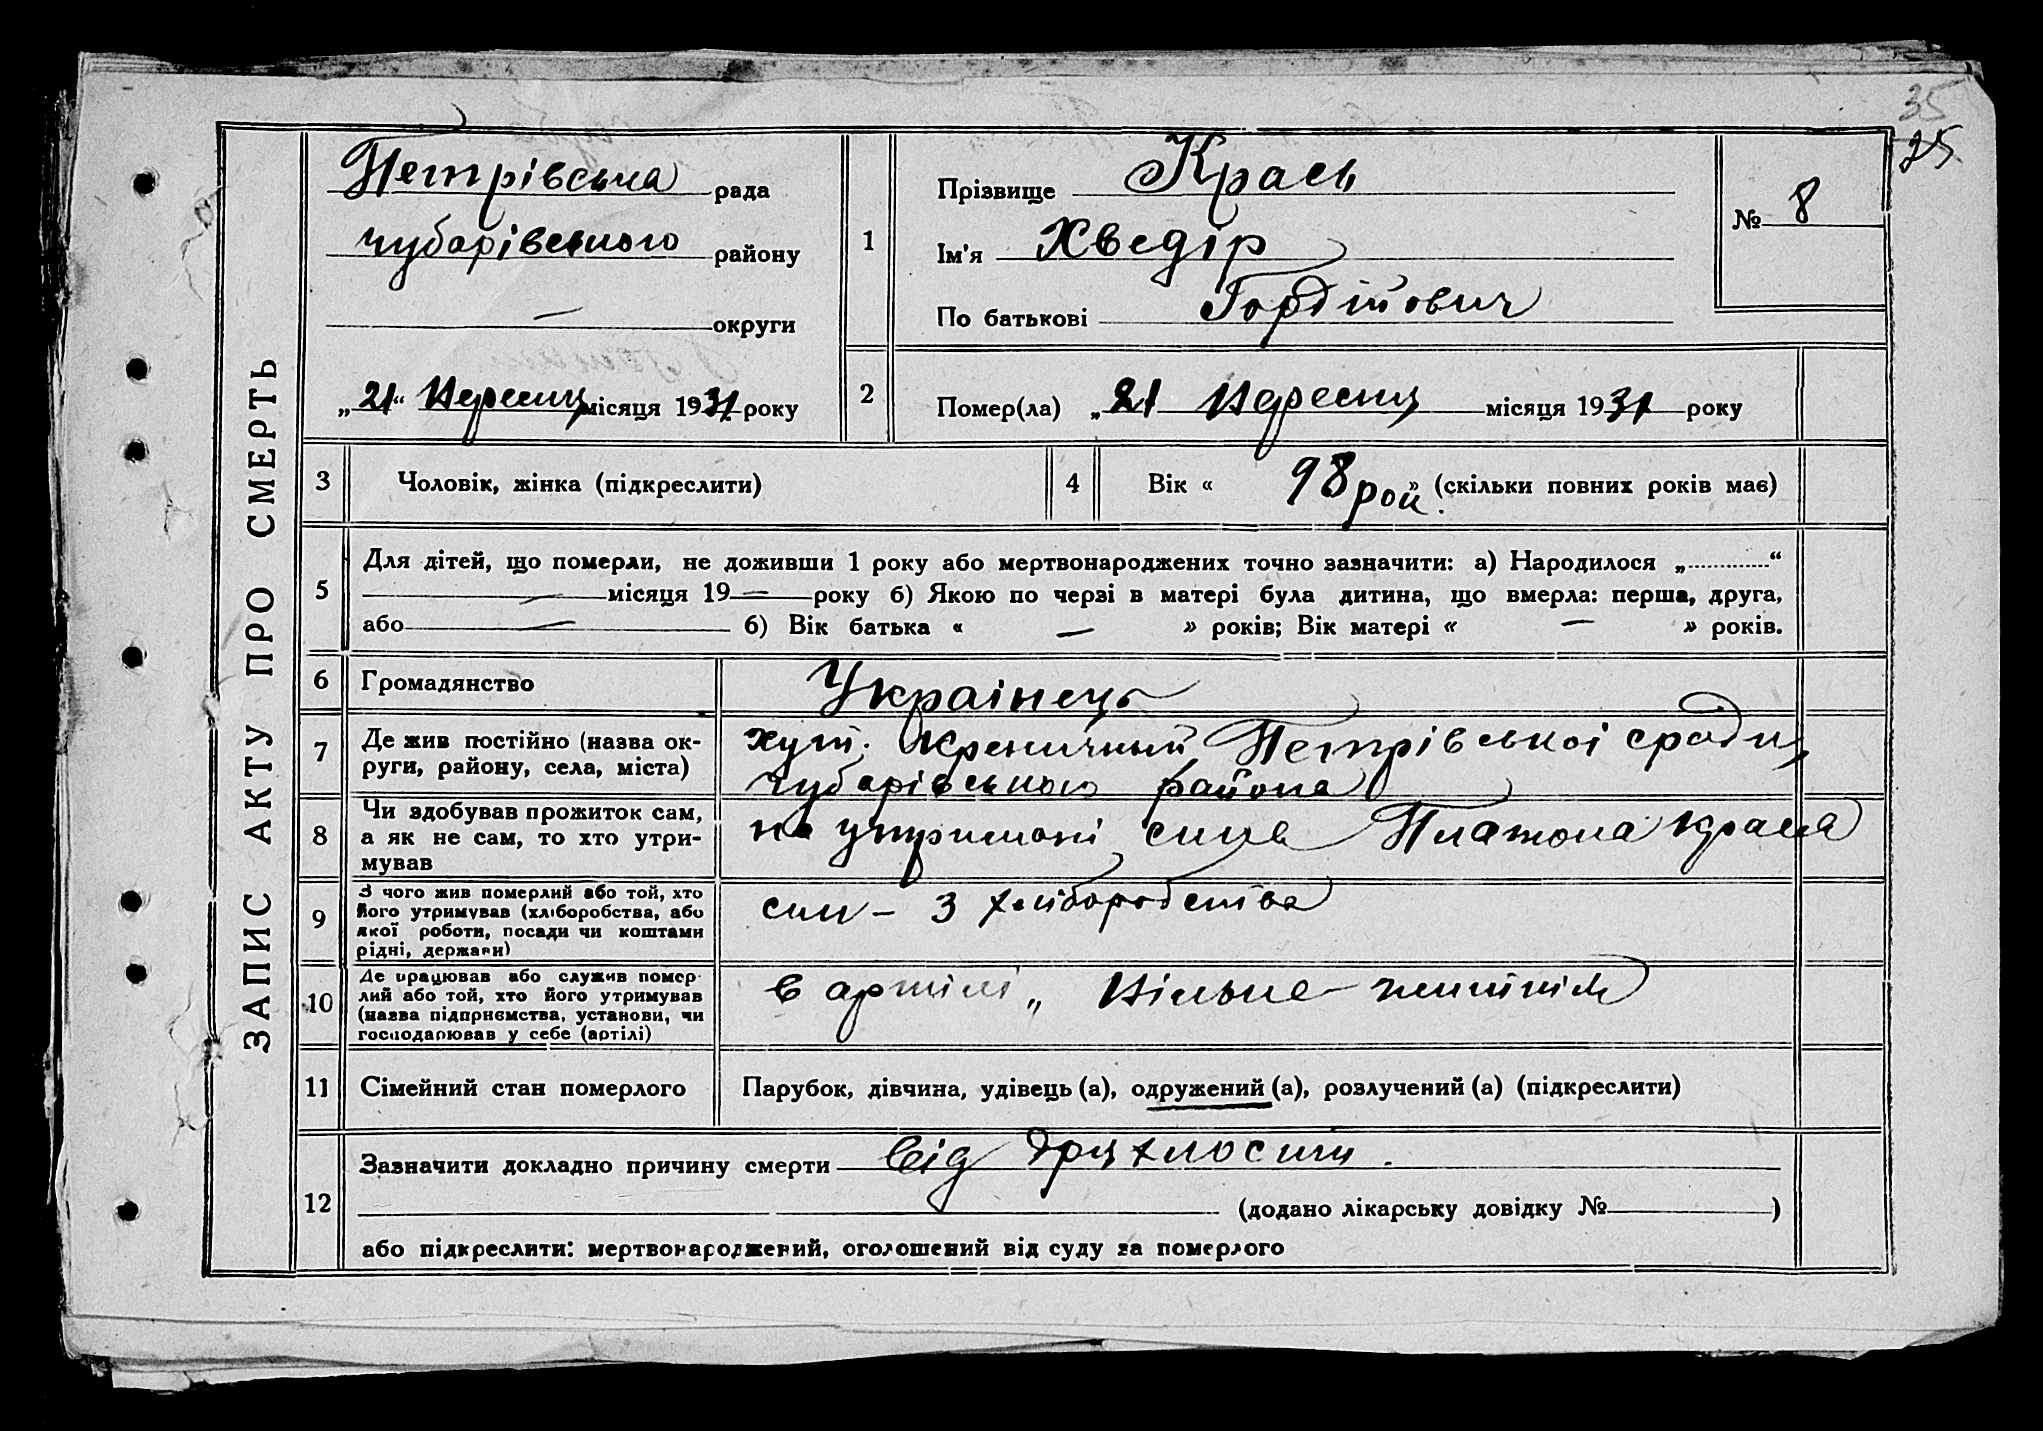 35
25.
ЗАПИС АКТУ ПРО СМЕРТЬ
Петрівська рада
Чубарівського району
— округи
„21“ Вересня місяця 1931 року
1
Прізвище Крась
Ім'я Хведір
По батькові Гордійович
№ 8
2
Помер(ла) „21 Вересня місяця 1931 року
3 Чоловік, жінка (підкреслити)
4 Вік « 98 рок. » (скільки повних років має)
5
Для дітей, що померли, не доживши 1 року або мертвонароджених точно зазначити: а) Народилося „............“
— місяця 19 — року б) Якою по черзі в матері була дитина, що вмерла: перша, друга,
або — б) Вік батька « — » років; Вік матері « — » років.
6 Громадянство Українець
7 Де жив постійно (назва ок-
руги, району, села, міста)
хут. Креничный Петрівської сради
Чубарівського района
8 Чи здобував прожиток сам,
а як не сам, то хто утри-
мував
на утримані сина Платона Крася
9 З чого жив померлий або той, хто
його утримував (хліборобства, або
якої роботи, посади чи коштами
рідні, держави)
син – З хліборобства
10 Де працював або служив помер-
лий або той, хто його утримував
(назва підприємства, установи, чи
господарював у себе (артілі)
в артілі „ Вільне
11 Сімейний стан померлого
Парубок, дівчина, удівець (а), одружений (а), розлучений (а) (підкреслити)
12
Зазначити докладно причину смерти від дряхлости.
(додано лікарську довідку № )
або підкреслити: мертвонароджений, оголошений від суду за померлого